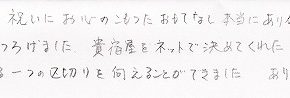 祝いに お心のこもった おもてなし 本当にあり
つろげました。貴宿屋をネットで決めてくれた
る一つの区切りを向えることができました あり